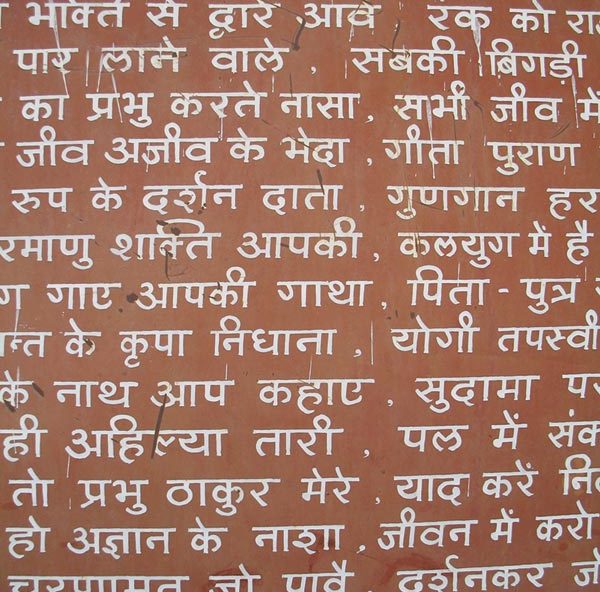 भक्ति से द्वारे आवे रंक को
पार लाने वाले , सबकी बिगड़ी
का प्रभु करते नासा , सभी जीव में
जीव अजीव के भेदा , गीता पुराण
रुप के दर्शन दाता , गुणगान
शक्ति आपकी , कलयुग में है
गाए आपकी गाथा , पिता - पुत्र
के कृपा निधाना , योगी तपस्वी
के नाथ आप कहाए , सुदामा
ही अहिल्या तारी , पल में
तो प्रभु ठाकुर मेरे , याद करें
हो अज्ञान के नाशा , जीवन में करो
चरणामृत जो पावै , दर्शनकर